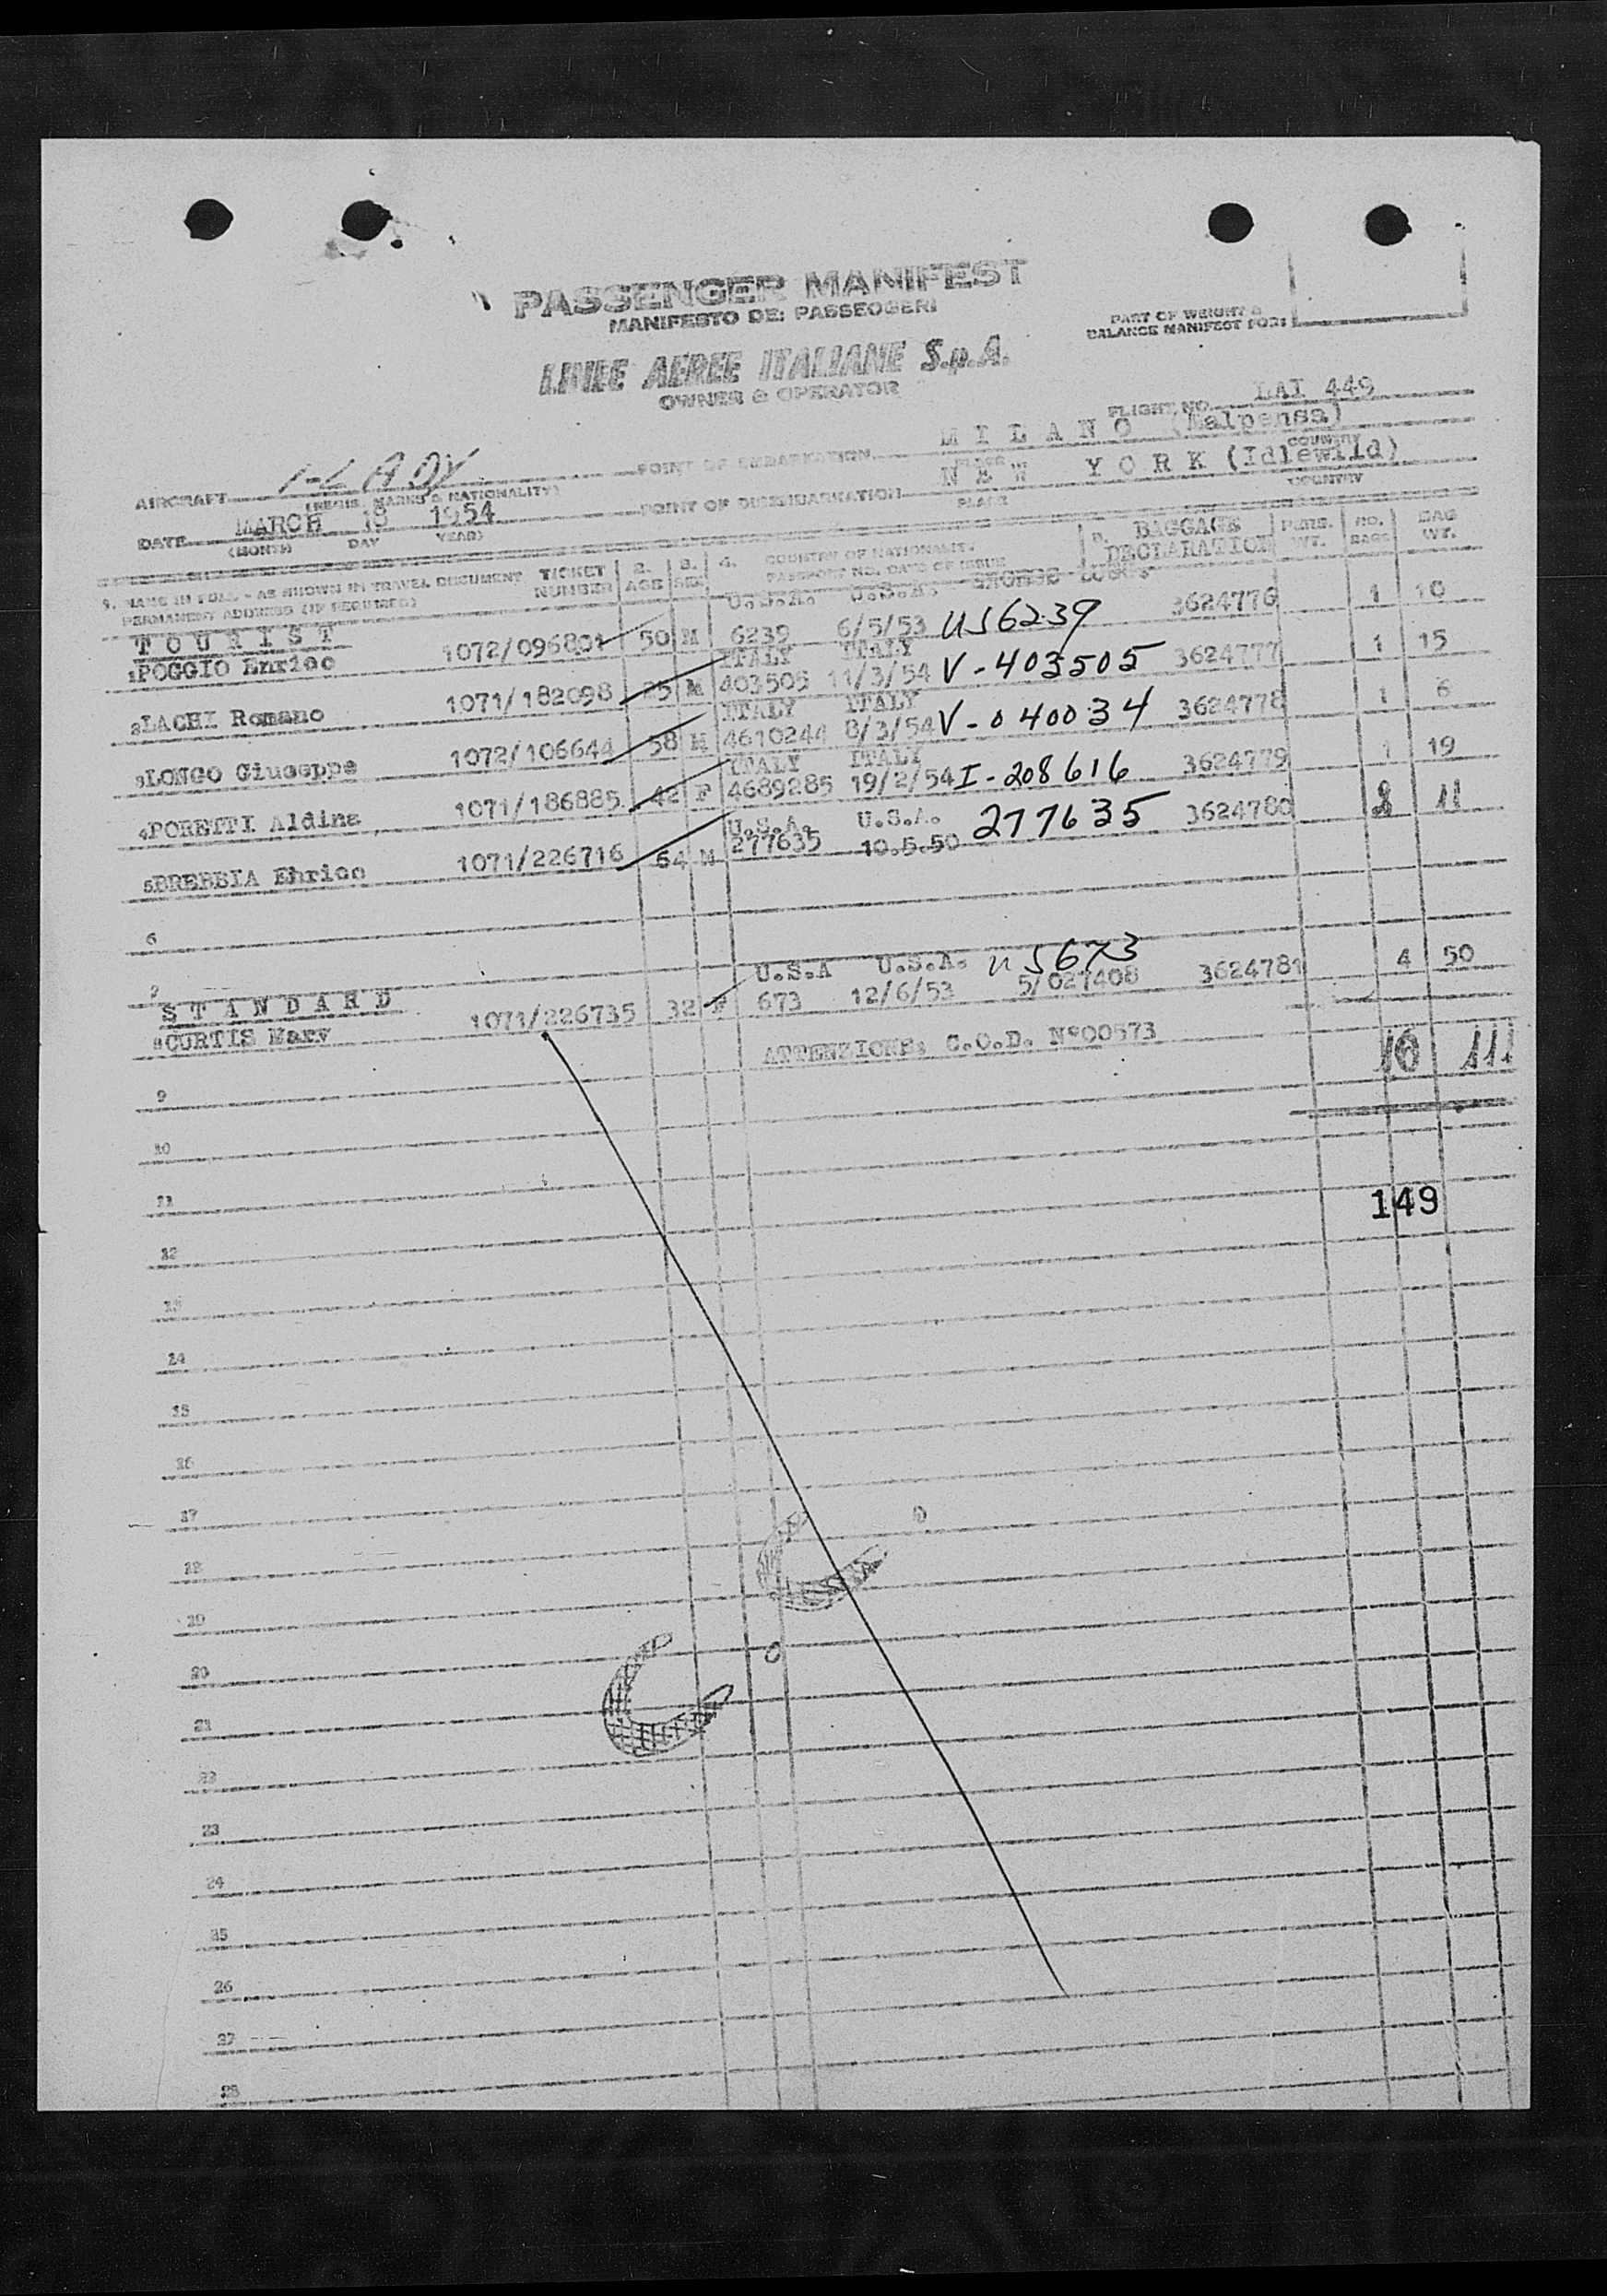 PASSENGER MANIFEST
MANIFESTO DEI PASSEGGERI
PART OF WEIGHT &
BALANCE MANIFEST FOR:
LINEE AEREE ITALIANE S.p.A.
OWNER & OPERATOR
FLIGHT NO. LAI 449
AIRCRAFT I-LADY POINT OF EMBARKATION MILANO (Malpensa)
(REGIS. MARKS & NATIONALITY) PLACE COUNTRY
DATE MARCH 18 1954 POINT OF DISEMBARKATION NEW YORK (Idlewild)
(MONTH) DAY YEAR) PLACE COUNTRY
1. NAME IN FULL - AS SHOWN IN TRAVEL DOCUMENT TICKET 2. 3. 4. COUNTRY OF NATIONALITY BAGGAGE NO. BAG
PERMANENT ADDRESS (IF REQUIRED) NUMBER AGE SEX PASSPORT NO. DATE OF ISSUE DECLARATION WT. BAGS WT.
TOURIST U.S.A. U.S.A.
1POGGIO Enrico 1072/096801 50 M 6239 6/5/53 US6239 3624776 1 10
ITALY ITALY
2LACHI Romano 1071/182098 25 M 403505 11/3/54 V-403505 3624777 1 15
ITALY ITALY
3LONGO Giuseppe 1072/106644 58 M 4610244 8/3/54 V-040034 3624778 1 6
ITALY ITALY
4PORETTI Aldina 1071/186885 42 F 4689285 19/2/54 I-208616 3624779 1 19
U.S.A. U.S.A.
5BREBBIA Ehrico 1071/226716 64 M 277635 10.5.50 277635 3624780 2 11
6
7
STANDARD U.S.A U.S.A. US673
8CURTIS Mary 1071/226735 32 F 673 12/6/53 5/027408 3624781 4 50
ATTENZIONE: C.O.D. N°00573
10 111
9
10
11
149
12
13
14
15
16
17
18
19
20
21
22
23
24
25
26
27
28